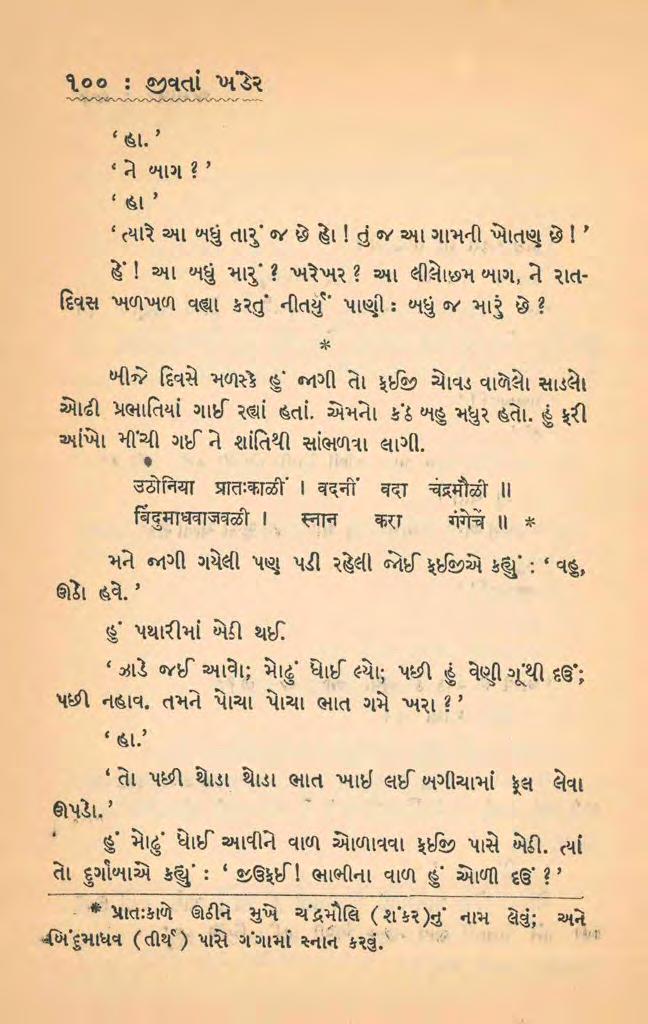 ૧૦૦ : જીવતાં ખંડેર
‘ હા. ’
‘ ને બાગ ? ’
‘ હા ’
‘ ત્યારે આ બધું તારું જ છે હો ! તું જ આ ગામની ખોતણ છે ! ’
હેં ! આ બધું મારું ? ખરેખર ? આ લીલોછમ બાગ, ને રાત-
દિવસ ખળખળ વહ્યા કરતું નીતર્યું પાણી : બધું જ મારું છે ?
*
બીજે દિવસે મળસ્કે હું જાગી તો ફઈજી ચોવડ વાળેલો સાડલો
ઓઢી પ્રભાતિયાં ગાઈ રહ્યાં હતાં. એમનો કંઠ બહુ મધુર હતો. હું ફરી
આંખો મીંચી ગઈ ને શાંતિથી સાંભળવા લાગી.
उठोनिया प्रातःकाळीं । वदनीं वदा चंद्रमौळी ॥
बिंदुमाधवाजवळी । स्नान करा गंगेचें ॥ *
મને જાગી ગયેલી પણ પડી રહેલી જોઈ ફઈજીએ કહ્યું : ‘ વહુ,
ઊઠો હવે. ’
હું પથારીમાં બેઠી થઈ.
‘ ઝાડે જઈ આવો; મોઢું ધોઈ લ્યો; પછી હું વેણી ગૂંથી દઉં;
પછી નહાવ. તમને પોચા પોચા ભાત ગમે ખરા ? ’
‘ હા.’
‘ તો પછી થોડા થોડા ભાત ખાઇ લઈ બગીચામાં ફૂલ લેવા
ઊપડો. ’
હું મોઢું ધોઈ આવીને વાળ ઓળાવવા ફઈજી પાસે બેઠી. ત્યાં
તો દુર્ગાબાએ કહ્યું : ‘ જીઉફઈ ! ભાભીના વાળ હું ઓળી દઉં ? ’
* પ્રાતઃકાળે ઊઠીને મુખે ચંદ્રમૌલિ ( શંકર )નું નામ લેવું; અને
બિંદુમાધવ (તીર્થ) પાસે ગંગામાં સ્નાન કરવું.